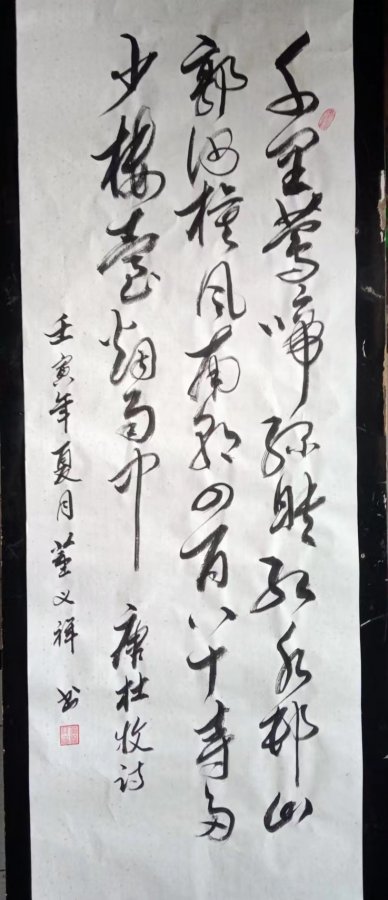 千里莺啼绿映红水邨山
郭酒旗风南朝四百八十寺多
少楼臺烟雨中 唐杜牧诗
壬寅年夏月董义祥书